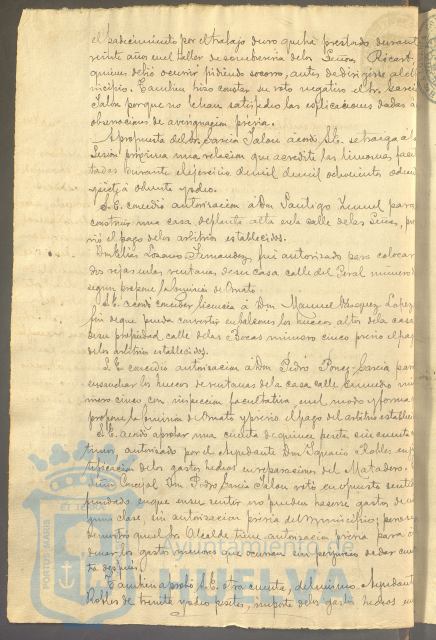 el padecimiento por el trabajo duro que ha prestado durante
veinte años en el taller de sombrereria de los Señores Ricart
quienes debió ocurrir pidiendo socorro, antes de dirigirse al
nicipio. Tambien hizo constar su voto negativo el Sr. Garcia
Jalon porque no le han satisfecho las esplicaciones dadas á
observaciones de averiguacion prévia.
A propuesta del Sr. Garcia Jalon acordó S.E. se traiga á la
sesion próxima una relacion que acredite las limosnas facili
tadas durante el ejercicio de mil ochocientos ochenta
y siete á ochenta y ocho.
S.E. concedió autorizacion á Don Santiago para
construir una casa de planta alta en la calle de las Señas, pré
vio el pago de los arbitrios establecidos.
Don Elias Lozano Fernandez fué autorizado para colocar
dos rejas en las ventanas de su casa calle del Peral numero
segun propone la Comision de Ornato.
S.E. acordó conceder licencia á Don Manuel Vazquez Lopez
fin de que pueda convertir en balcones los huecos altos de la casa
de su propiedad calle de las Bocas numero cinco prévio el pago
de los arbitrios establecidos.
S.E. concedió autorizacion á Don Pedro Ponce Garcia para
ensanchar los huecos de ventanas de la casa calle nu
mero cinco, con inspeccion facultativa, en el modo y forma
propone la Comision de Ornato y prévio el pago del arbitrio establecido
S.E. acordó aprobar una cuenta de quince pesetas cincuenta
timos autorizada por el Ayudante Don Ignacio Robles en
tificacion de los gastos hechos en reparaciones del Matadero.
Concejal Don Pedro Garcia Jalon votó en opuesto sentido
fundado en que en su sentir no pueden hacerse gastos de
guna clase, sin autorizacion prévia del Municipio; pero se
demostró que el Sr. Alcalde tiene autorizacion para or
denar los gastos menores que ocurran sin perjuicio de dar cuen
ta despues.
Tambien aprobó S.E. otra cuenta, del mismo Ayudante
Robles de treinta y ocho pesetas, importe de los gastos hechos en
ET TERRE
PORTUS MARIS
Ayuntamiento de
HUELVA